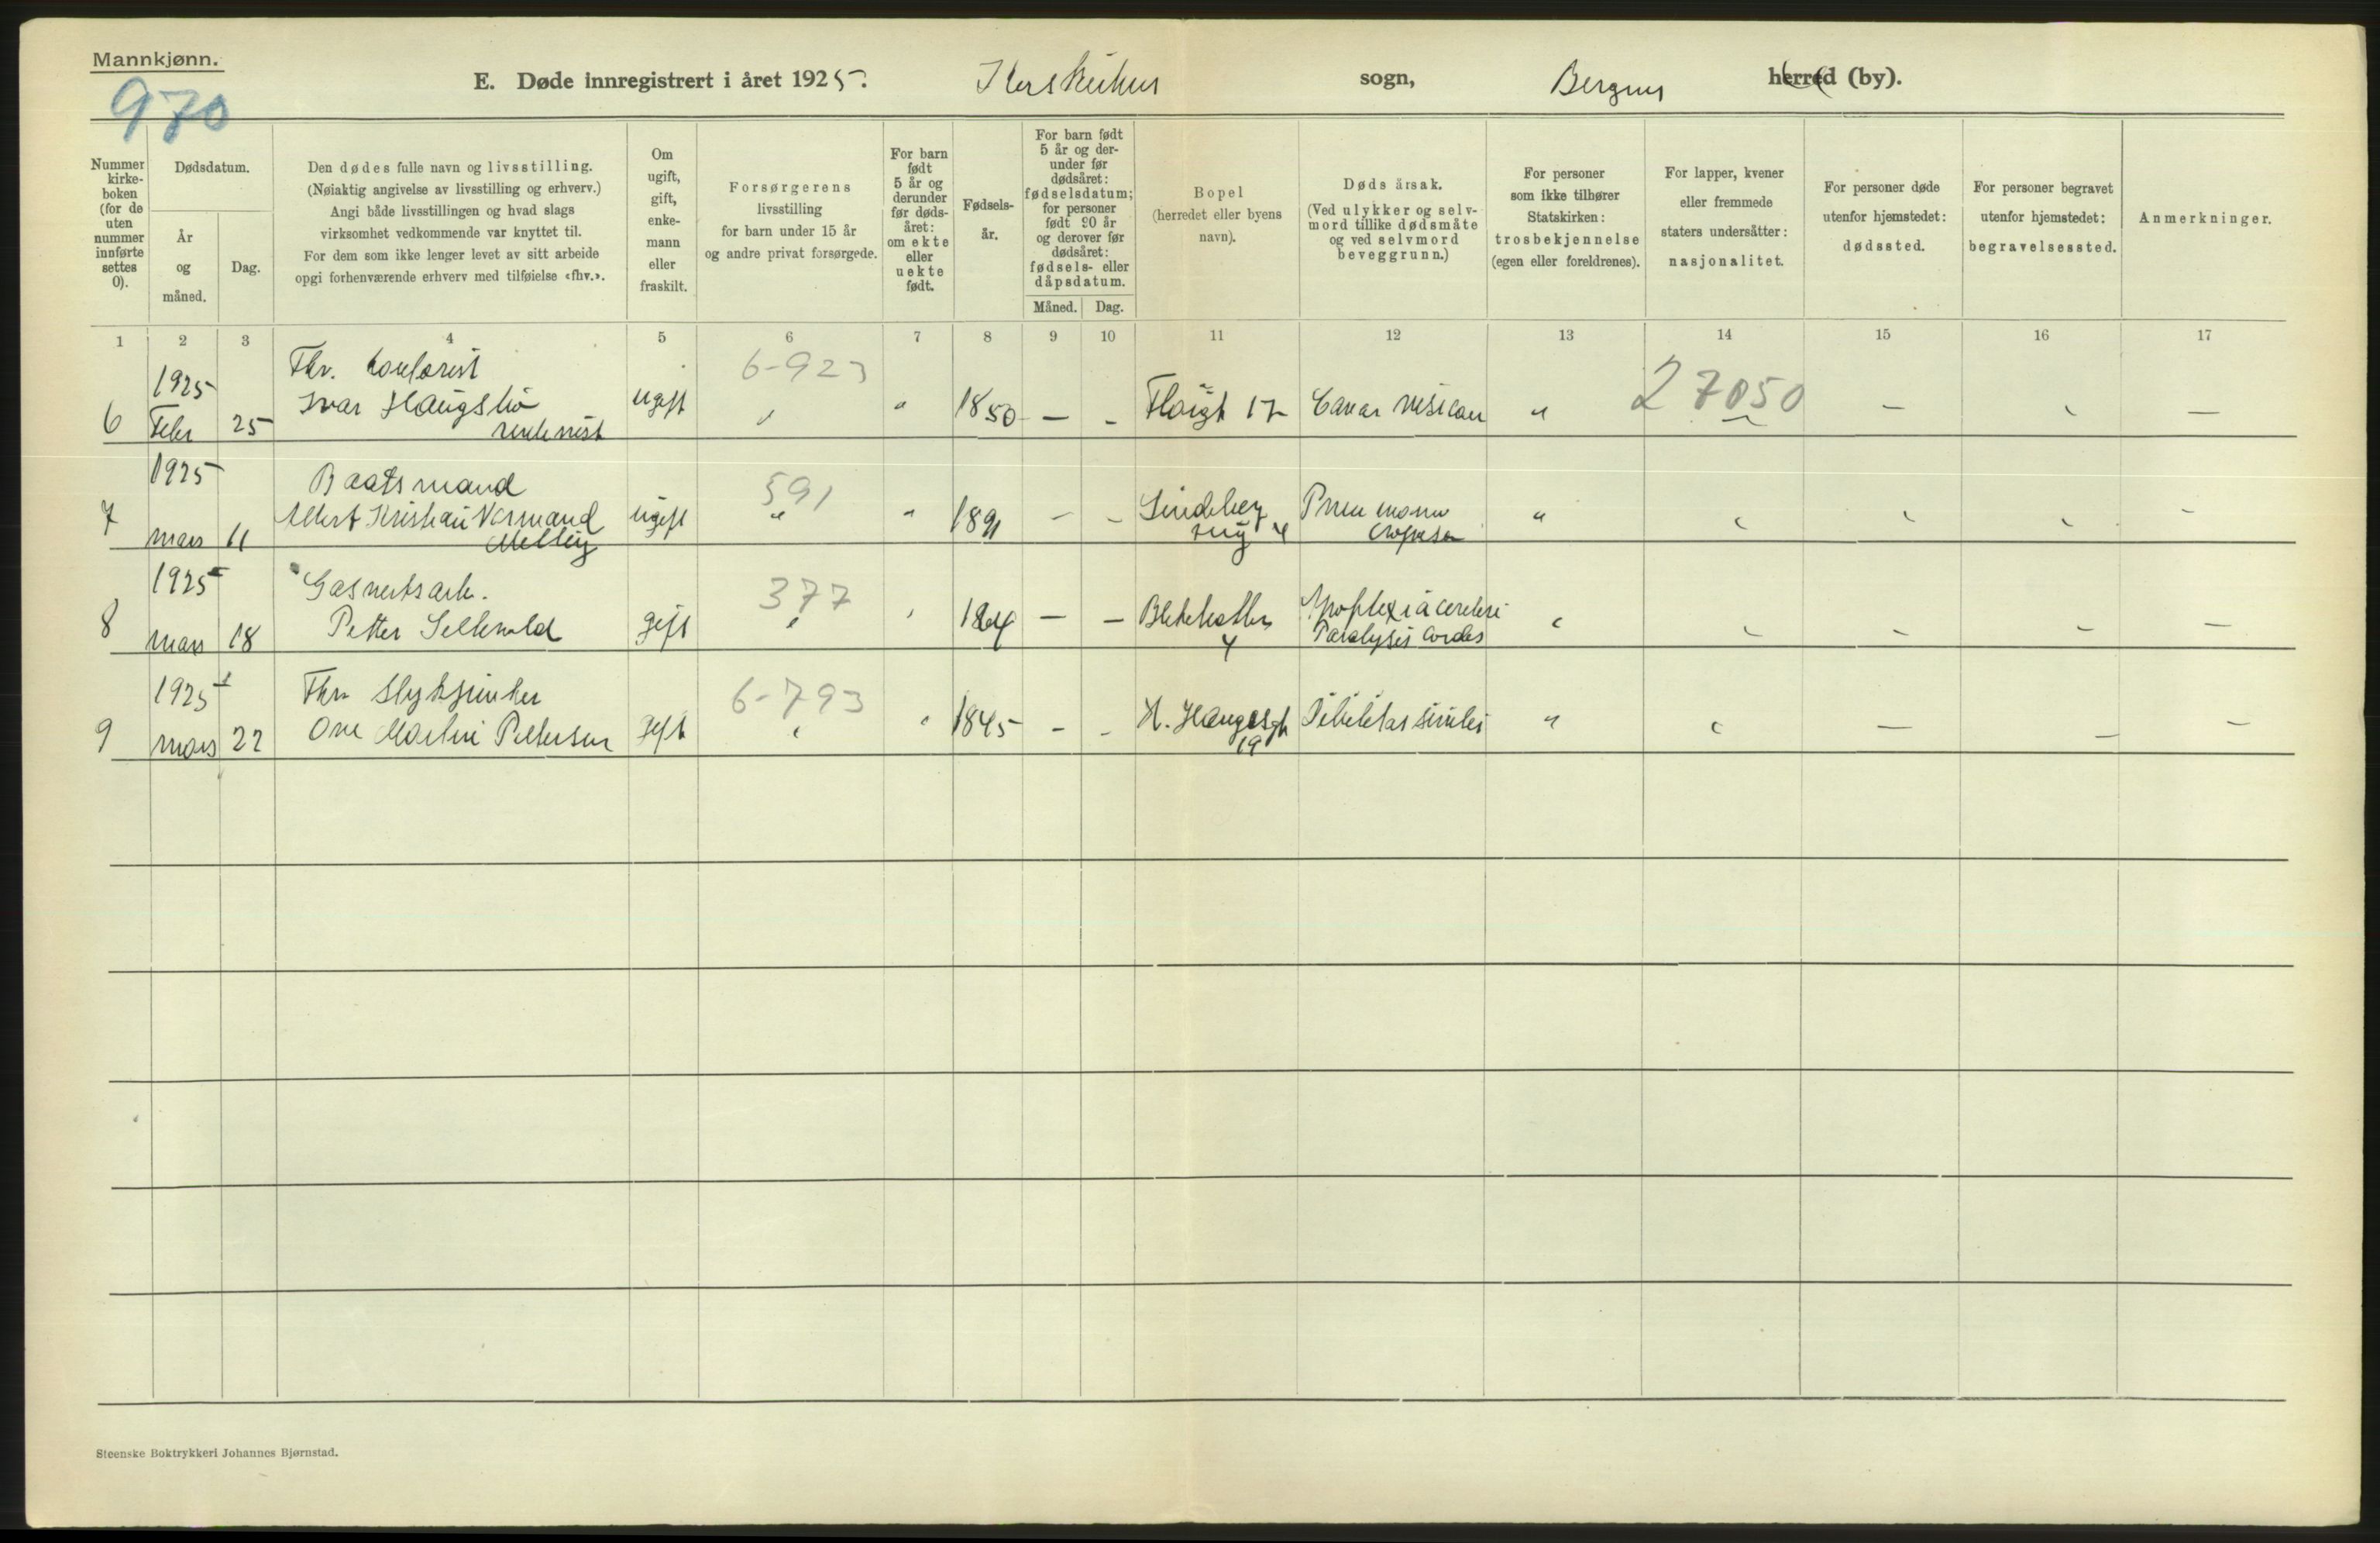 Mannkjønn.
970
E. Døde innregistrert i året 1925. Korskirkens sogn, Bergens herred (by).
Nummer kirke-boken (for de uten nummer innførte settes 0).
Dødsdatum.
År og måned.
Dag.
Den dødes fulle navn og livsstilling.
(Nøiaktig angivelse av livsstilling og erhverv.)
Angi både livsstillingen og hvad slags
virksomhet vedkommende var knyttet til.
For dem som ikke lenger levet av sitt arbeide
opgi forhenværende erhverv med tilføielse «fhv.».
Om ugift, gift, enke-mann eller fraskilt.
Forsørgerens
livsstilling
for barn under 15 år
og andre privat forsørgede.
For barn født 5 år og derunder før døds-året: om ekte eller uekte født.
Fødsels-år.
For barn født 5 år og der-under før dødsåret: fødselsdatum; for personer født 90 år og derover før dødsåret: fødsels- eller dåpsdatum.
Måned. Dag.
Bopel
(herredet eller byens navn).
Dødsårsak.
(Ved ulykker og selv-mord tillike dødsmåte og ved selvmord beveggrunn.)
For personer
som ikke tilhører
Statskirken:
trosbekjennelse
(egen eller foreldrenes).
For lapper, kvener
eller fremmede
staters undersåtter:
nasjonalitet.
For personer døde
utenfor hjemstedet:
dødssted.
For personer begravet
utenfor hjemstedet:
begravelsessted.
Anmerkninger.
1 2 3 4 5 6 7 8 9 10 11 12 13 14 15 16 17
1925 Fhv. 6-923 27050
6 Febr 25 Ivar ugift " " 1850 — - 17 " — —
1925 Baatsmand 591
7 mars 11 Albert Kristian ugift " " 1891 - - 4 "
Melling
1925 Gasverksarb.
377
8 mars 18 Petter gift " 1864 — — Apoplexia cerebri
4 Paralysis Cordis
1925 Fhv 6-793
9 mars 22 Pettersen gift 1845 - - H. Haugesgt Debilitas senilis "
19
Steenske Boktrykkeri Johannes Bjørnstad.